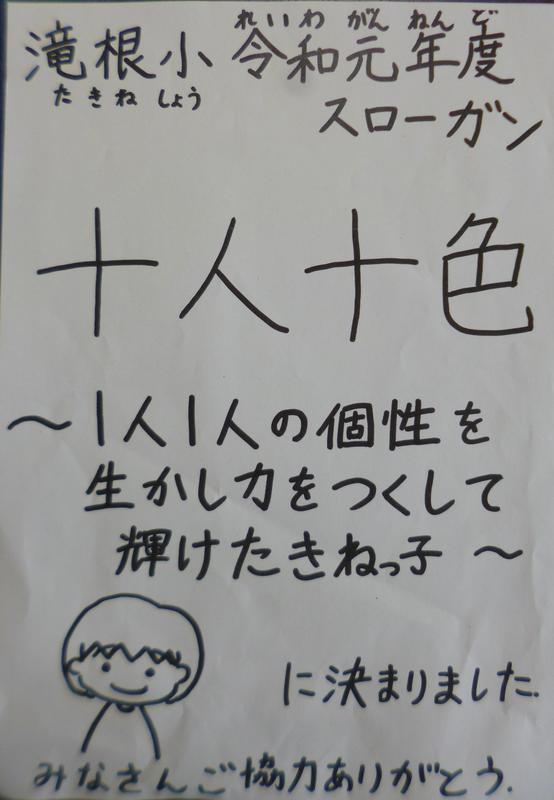 れいわ がんねんど
滝根小 令和元年度
たきねしょう
スローガン
十人十色
〜1人1人の個性を
生かし力をつくして
輝けたきねっ子〜
に決まりました.
みなさんご協力ありがとう.